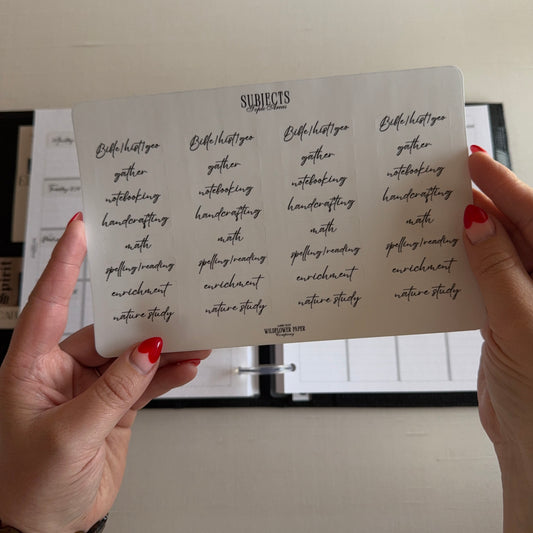 SUBJECTS
Bible/hist/geo Bible/hist/geo Bible/hist/geo Bible/hist/geo
gather gather gather gather
notebooking notebooking notebooking notebooking
handcrafting handcrafting handcrafting handcrafting
math math math math
spelling/reading spelling/reading spelling/reading spelling/reading
enrichment enrichment enrichment enrichment
nature study nature study nature study nature study
WILDFLOWER PAPER
Company